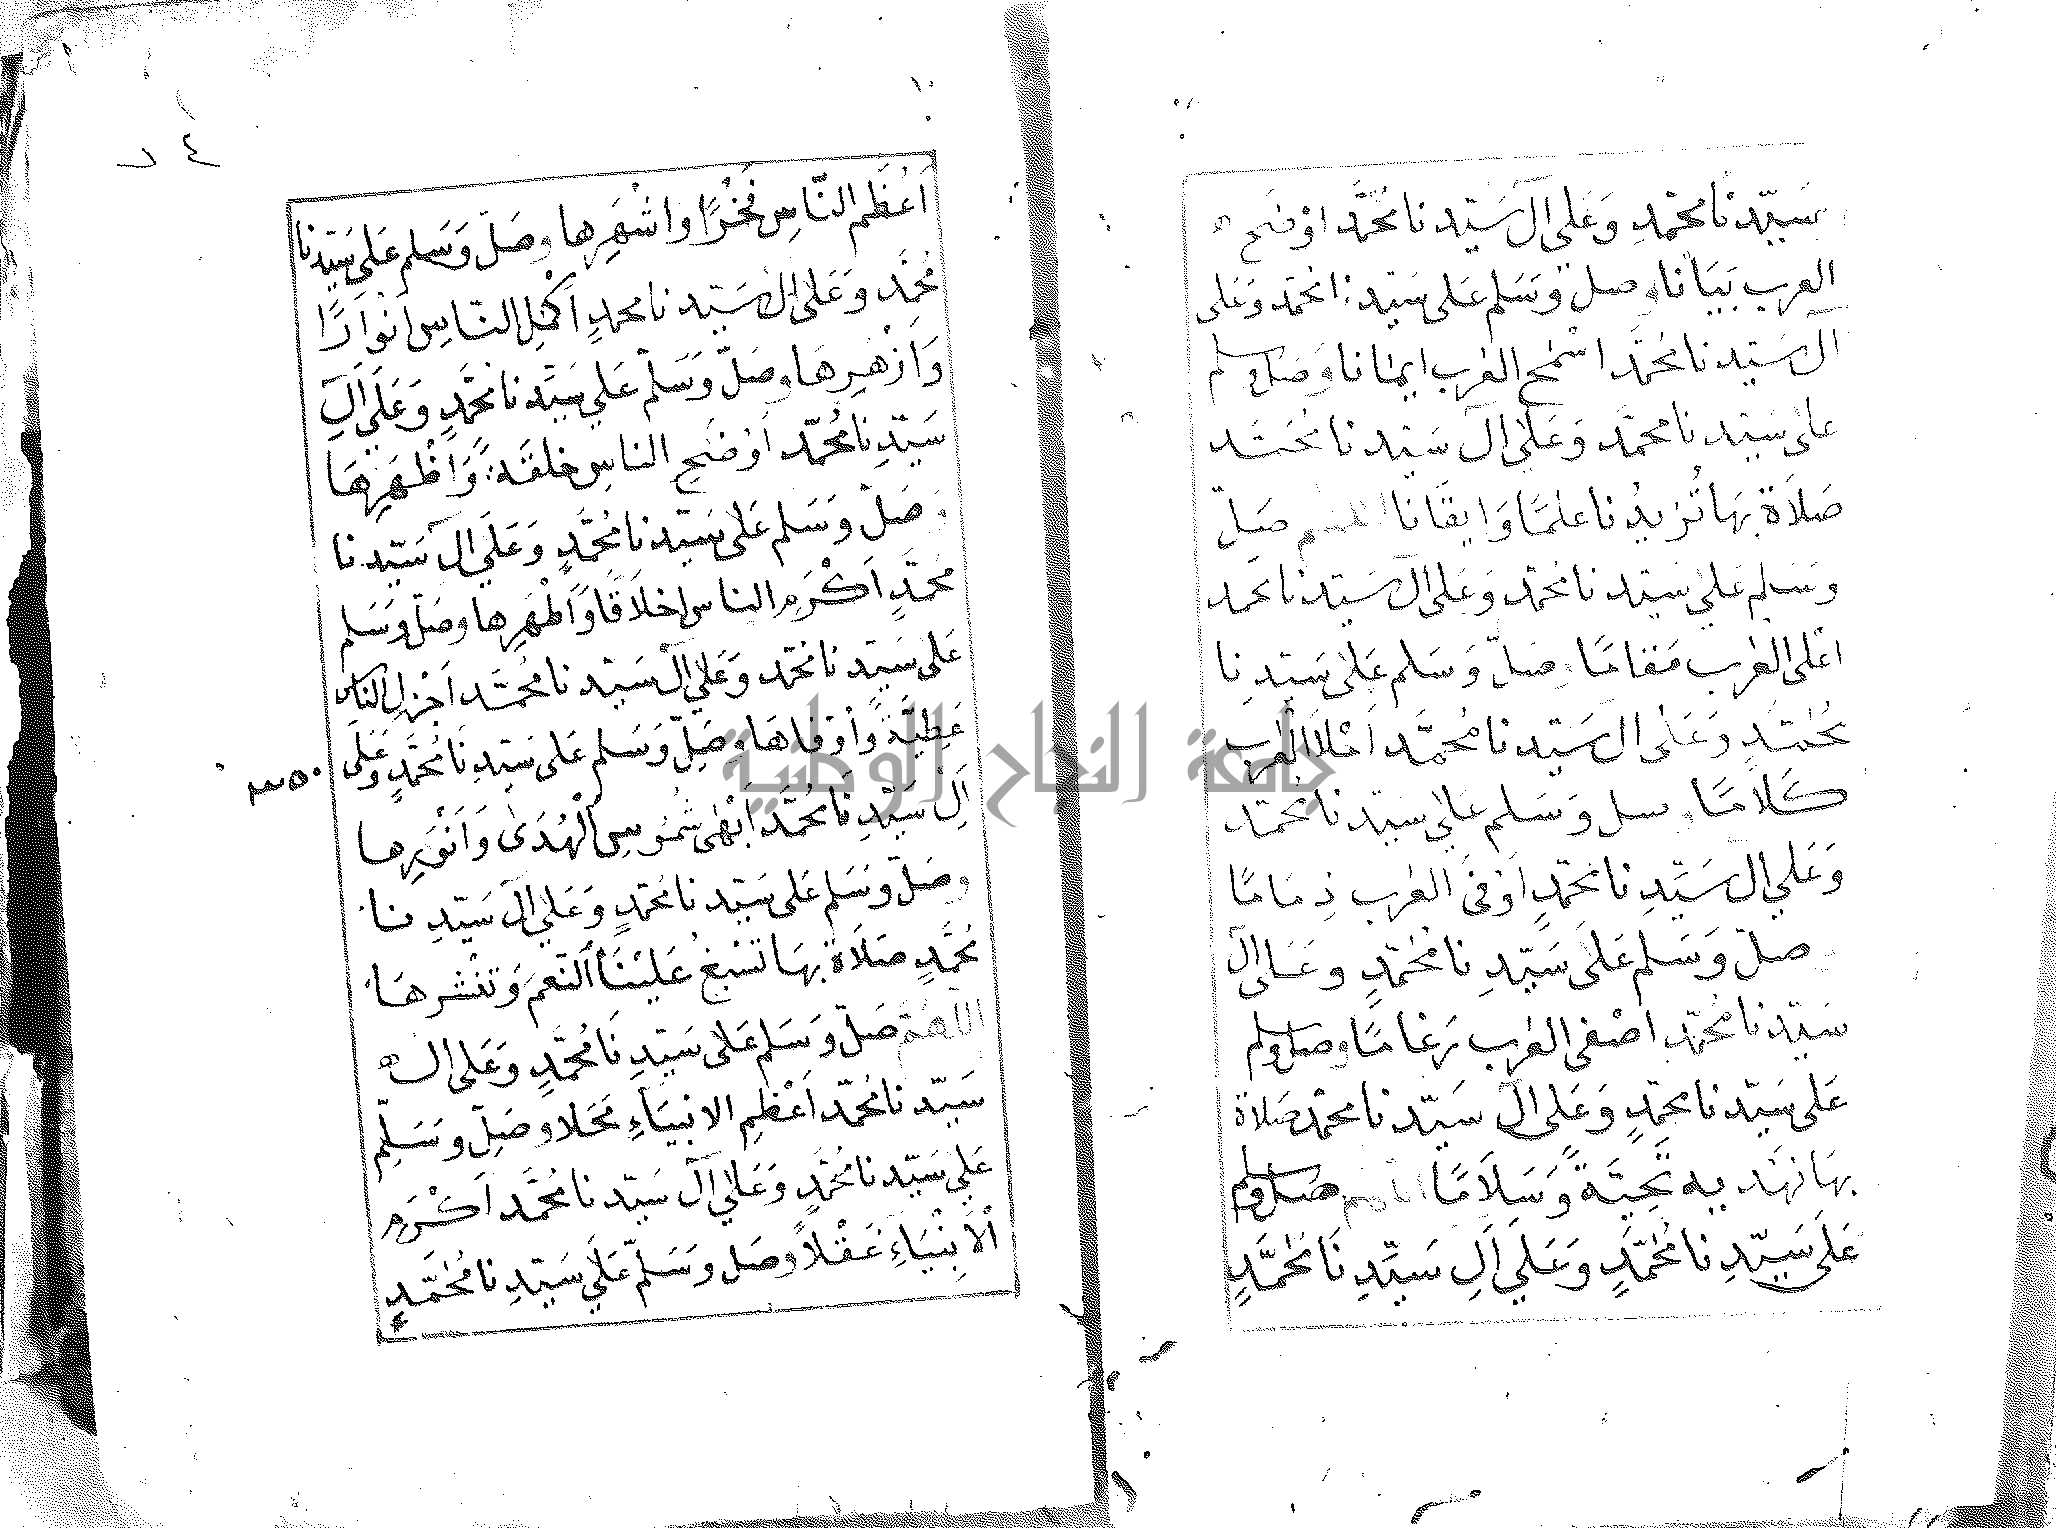 سَيِّدِنَا مُحَمَّدٍ وَعَلَى آلِ سَيِّدِنَا مُحَمَّدٍ اَوْضَحِ
العرب بَيَانًا وصل وَسَلم عَلى سَيِّدنا مُحَمّد وَعَلى
آل سَيّدنا مُحَمَّد اسْمَح العَرب ايمانا وَصَل وسلم
على سَيّدنا محمّد وَعَلى آل سَيّدنا مُحَمَّد
صَلَاة بهَا تُزيْدُنا علمًا وَايقَانًا اللهم صَلّ
وَسَلم عَلى سَيّدنا مُحَمّد وَعَلى آل سَيّدنا مُحَمد
اعْلى العَرب مَقامًا وصَلّ وَسَلم عَلى سَيّدنا
مُحَمّدٍ وَعَلى آل سَيّدنا مُحَمَّد اَحْلا العَرب
كَلَامًا وصل وَسَلم عَلى سَيّدنا مُحَمّد
وَعَلى آل سَيّدِنا مُحَمّدٍ اَوْفى العَرب ذِمَامًا
وصَلّ وَسَلم عَلَى سَيّدِنَا مُحَمَّدٍ وعَلى آل
سَيّدنا مُحَمّدٍ اَصْفى العَرب رغامًا وصَل وسلم
عَلى سَيّدنا مُحَمّدٍ وَعَلى آل سَيّدنا محمّد صَلاة
بهَا نهْد يه تَحِيَّةً وَسَلَامًا اللهم صَل وسلم
عَلَى سَيِّدِنا مُحَمَّدٍ وَعَلَى آلِ سَيِّدِنَا مُحَمَّدٍ
٧٤
اَعْظَم النّاسِ فَخْرًا واشْهَرِها وصَلّ وَسَلم عَلى سَيّدنا
مُحَمَّد وَعَلى آل سَيّدنا محمدٍ اَكْمِلِ النّاس اَنْوَارًا
وَاَزْهَرِهَا وصَلّ وَسَلّمْ عَلى سَيّدنا مُحَمَّدٍ وَعَلَى آلِ
سَيّدِنا مُحَمّد اَوْضَحِ الناس خلقَة وَاظْهَرِهَا
وصَلّ وَسَلم عَلى سَيّدنا مُحَمَّدٍ وَعَلى آل سَيّدنا
مُحَمَّدٍ اَكْرَمِ الناس اخلَاقًا وَاَطْهَرِها وصَلّ وَسَلم
عَلى سَيّدنا مُحَمّد وَعَلى آل سَيّدنا مُحَمَّد اَجْزلِ الناس
عَطِيَّةً وَاَوْفاهَا وصَلِّ وَسَلم عَلى سَيّدِنَا مُحَمَّدٍ وَعَلَى
٣٥٠
آلِ سَيّدِنَا مُحَمَّد اَبْهى شمُوسِ الْهُدَى وَاَنْوَرِها
وصَلّ وَسَلم عَلى سَيّدنا مُحَمّدٍ وَعَلى آل سَيّدِنا
مُحَمَّدٍ صَلَاةً بهَا تسْبغُ عَلَيْنَا النّعَمَ وَتنْشُرهَا
اللّهمّ صَلّ وَسَلم عَلى سَيّدِنَا مُحَمَّدٍ وَعَلى آل
سَيّدنا مُحَمّد اَعْظمِ الانبيَاءِ مَحَلا وصَلِّ وَسَلِّم
عَلى سَيّدنا مُحَمَّدٍ وَعَلى آل سَيّدنا مُحَمَّد اَكْرَمِ
اْلاَنْبِيَاءِ عَقْلاً وصَل وَسَلّم عَلَى سَيّدِنا مُحَمَّدٍ
جامعة النجاح الوطنية